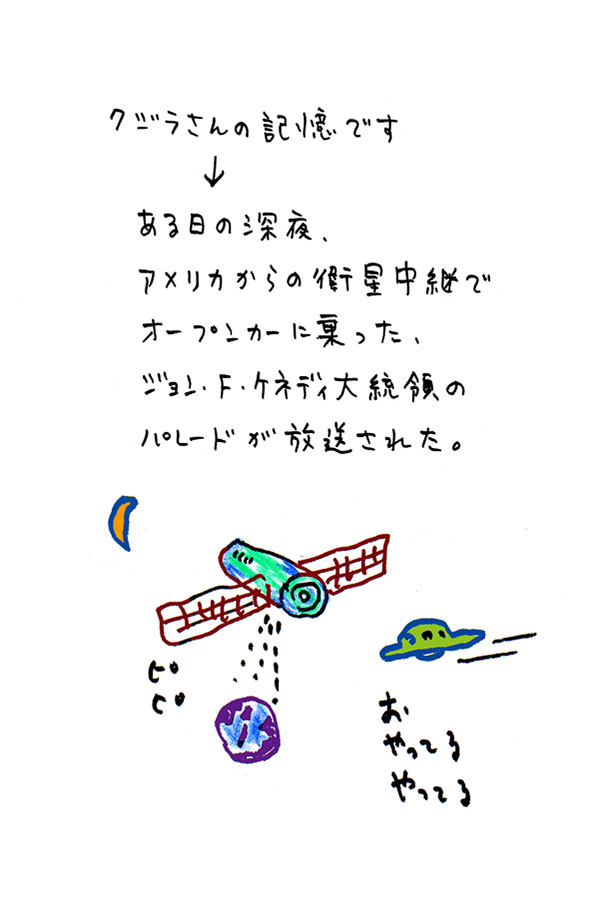 クジラさんの記憶です
↓
ある日の深夜、
アメリカからの衛星中継で
オープンカーに乗った、
ジョン・F・ケネディ大統領の
パレードが放送された。
ピ
ピ
お
やってる
やってる